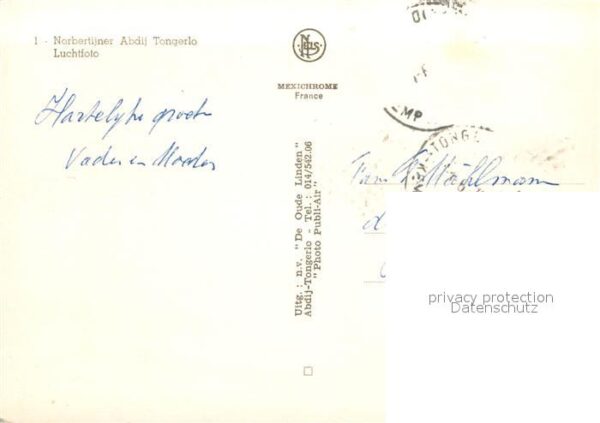 1 - Norbertijner Abdij Tongerlo
Luchtfoto
MEXICHROME
France
Hartelijke groeten
Vader en Moeder
Uitg.: n.v. "De Oude Linden"
Abdij-Tongerlo - Tel.: 014/542.06
"Photo Publi-Air"
TONG
Fam.
privacy protection
Datenschutz